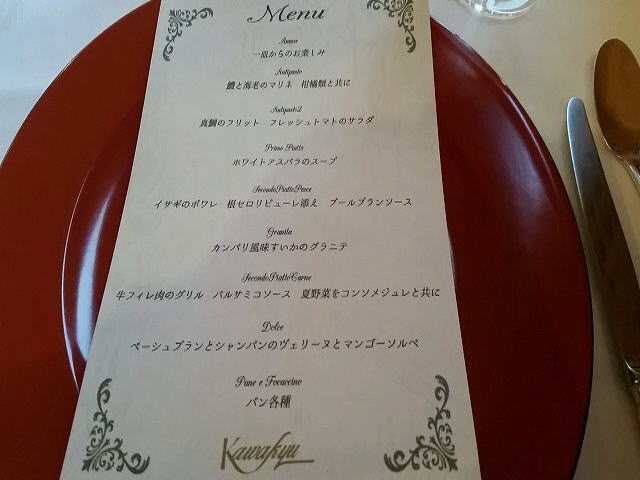 Menu
Amuse
一皿からのお楽しみ
Antipasto
鱧と海老のマリネ 柑橘類と共に
Antipasto2
真鯛のフリット フレッシュトマトのサラダ
Primo Piatto
ホワイトアスパラのスープ
SecondoPiattoPesce
イサギのポワレ 根セロリピューレ添え ブールブランソース
Granita
カンパリ風味すいかのグラニテ
SecondoPiattoCarne
牛フィレ肉のグリル バルサミコソース 夏野菜をコンソメジュレと共に
Dolce
ペーシュブランとシャンパンのヴェリーヌとマンゴーソルベ
Pane e Focaccino
パン各種
Kawakyu